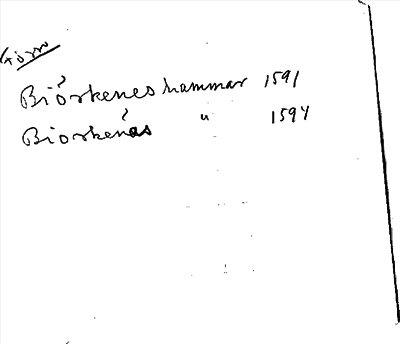 Förr
Biörkenes hammar 1591
Biorkenäs " 1594